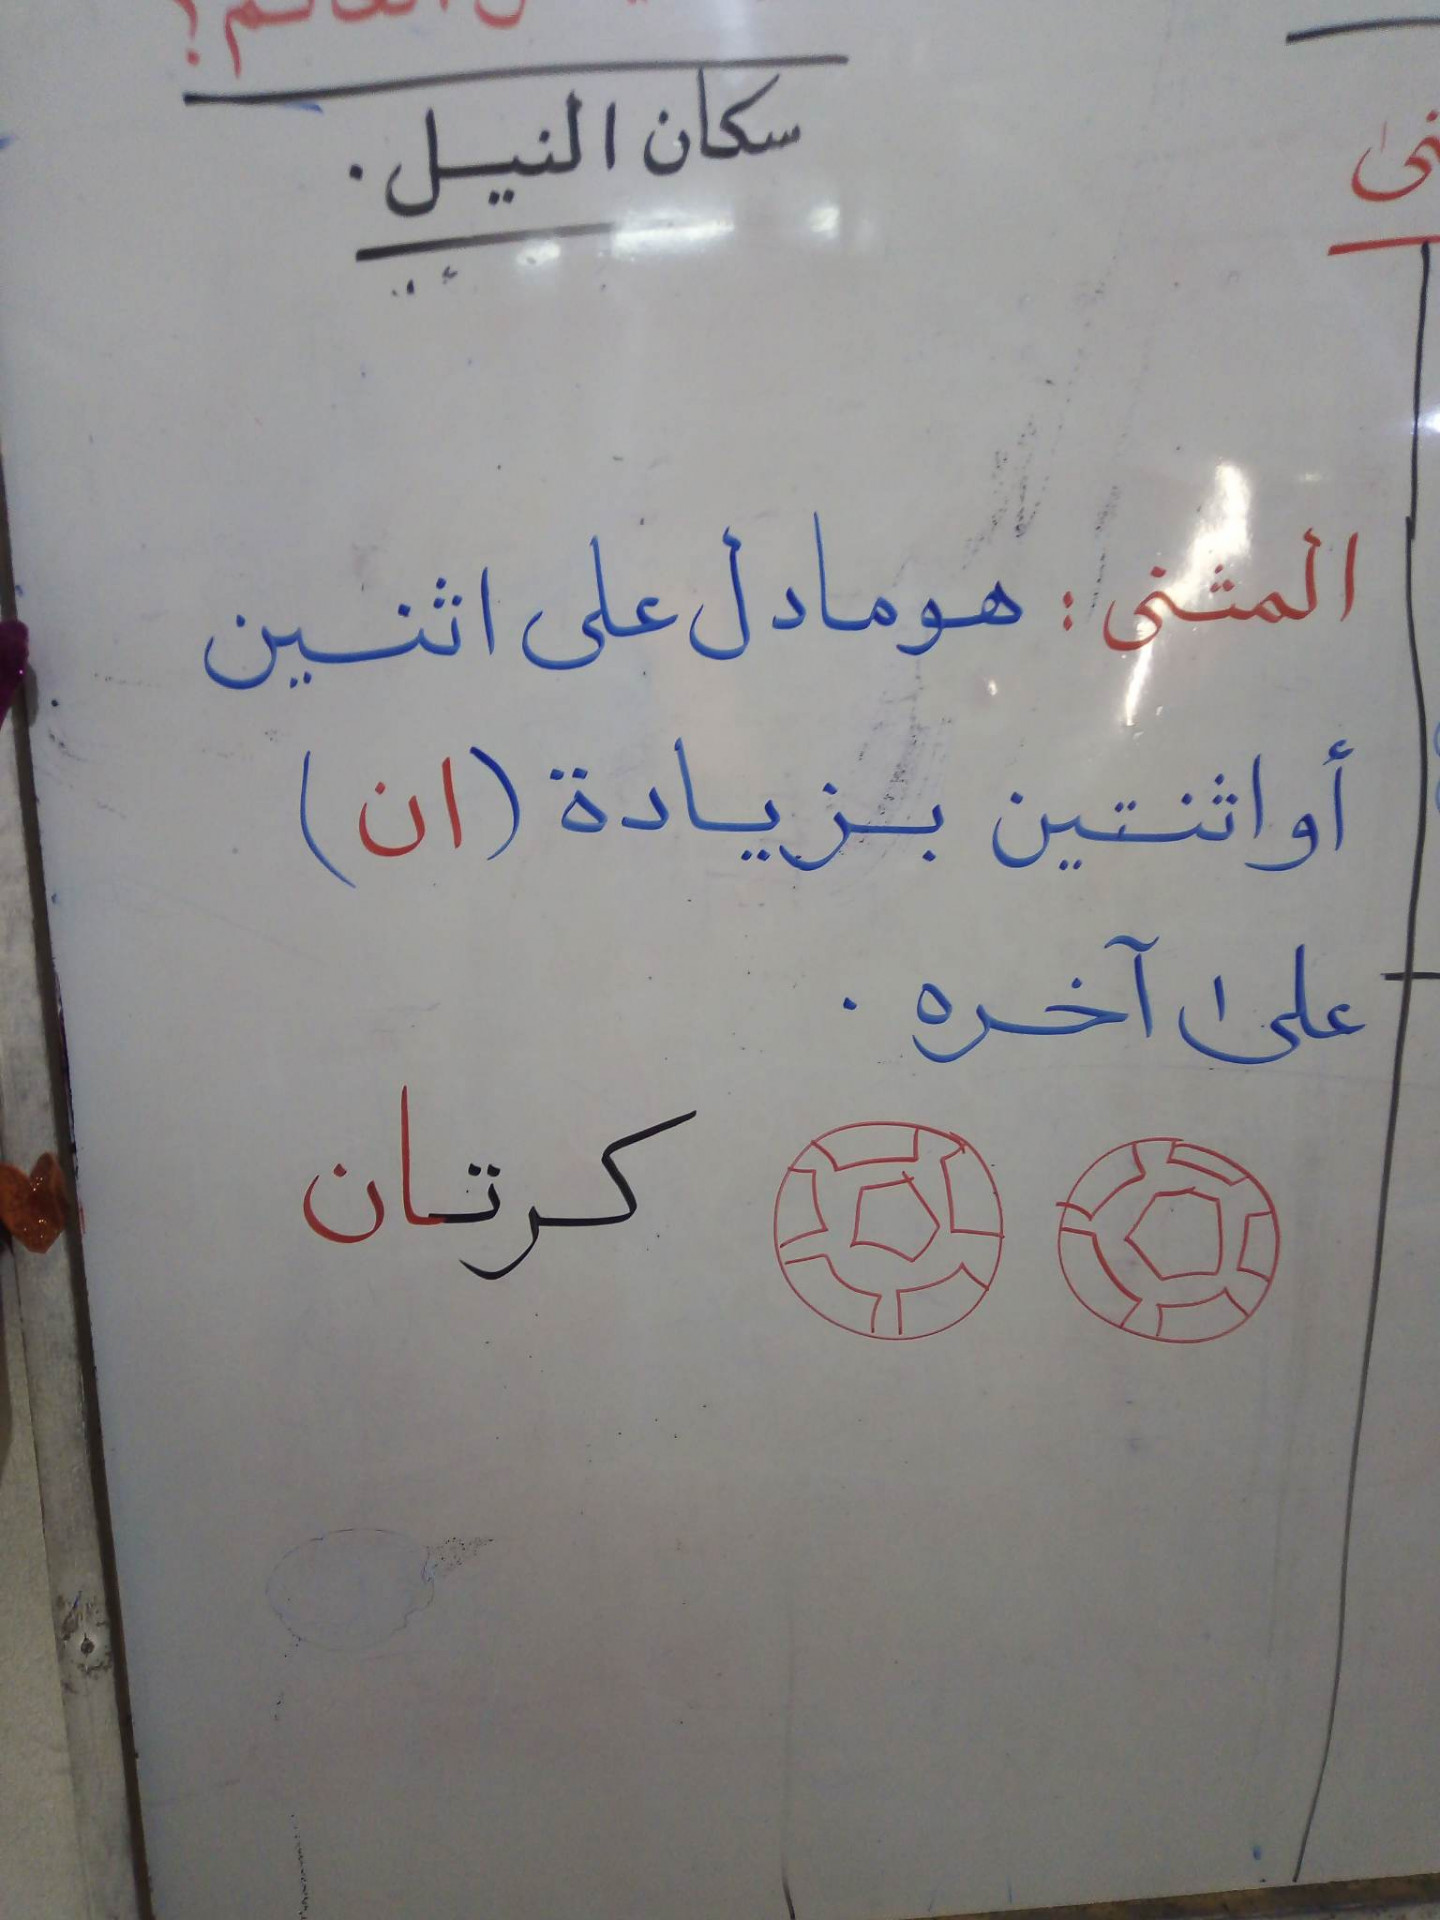 سكان النيل .
المثنى : هو ما دل على اثنين
أو اثنتين بزيادة (ان)
على آخره .
كرتان